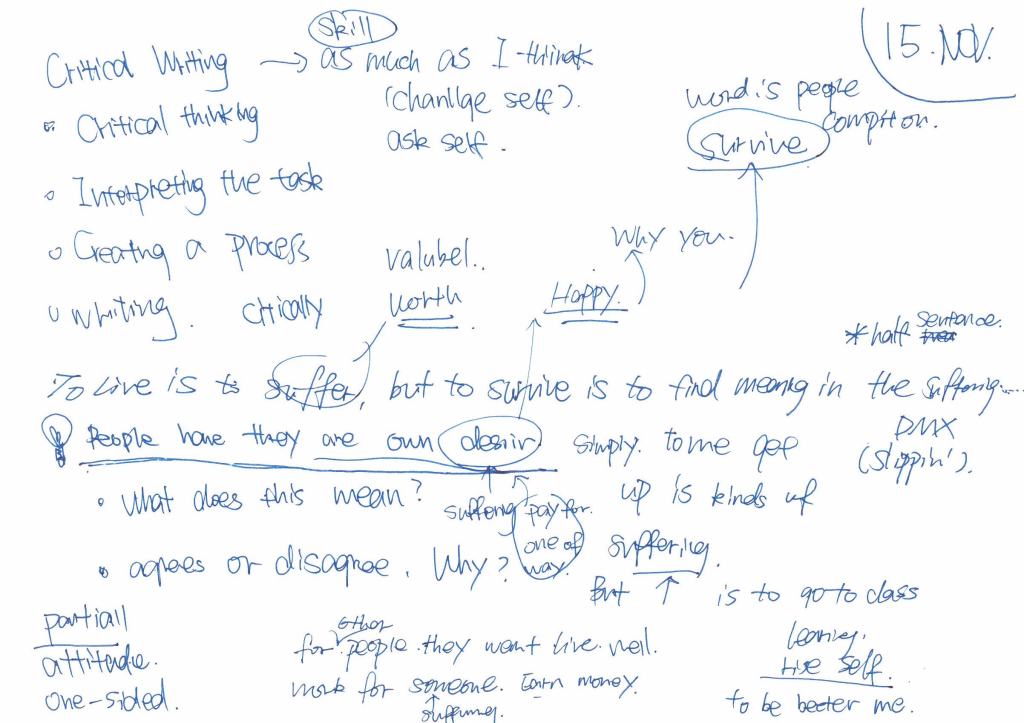 15. NOV.
Skill
Critical Writing → as much as I think
(chanllge self).
ask self.
word is people
Survive
Critical thinking
Interpreting the task
Creating a process
valubel..
Why you.
writing. ctically
worth
Happy.
* half sentence.
To Live is to suffer, but to survive is to find meaning in the suffering.....
People have they are own desir.
simply. to me get
DMX
(slippin').
• what does this mean?
suffering
pay for.
one of
way.
up is kinds of
suffering.
• agrees or disagree. Why?
But ↑ is to go to class
partiall
attitude.
one-sided.
other
for people they want live well.
work for someone. Earn money.
suffering.
self.
to be beeter me.